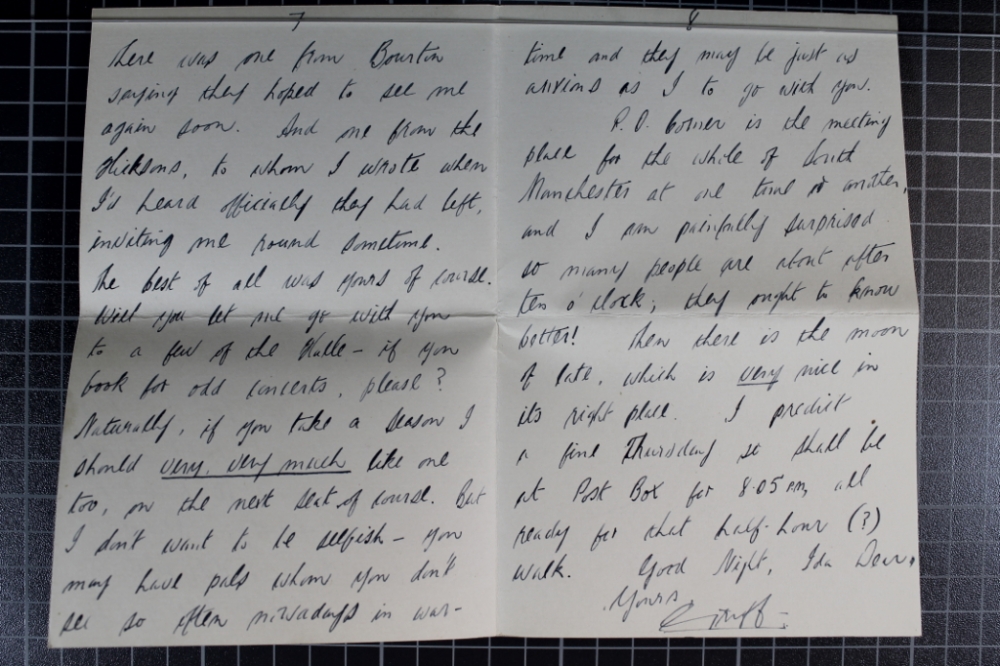 7
there was one from Bourton
saying they hoped to see me
again soon. And one from the
Hicksons, to whom I wrote when
I'd heard officially they had left,
inviting me round sometime.
The best of all was yours of course.
Will you let me go with you
to a few of the Halle - if you
book for odd concerts, please?
Naturally, if you take a season I
should very, very much like one
too, on the next seat of course. But
I don't want to be selfish - you
may have pals whom you don't
see so often nowadays in war-
8
time and they may be just as
anxious as I to go with you.
P.O. Corner is the meeting
place for the whole of South
Manchester at one time or another,
and I am painfully surprised
so many people are about after
ten o'clock; they ought to know
better! Then there is the moon
of late, which is very nice in
its right place. I predict
a fine Thursday so shall be
at Post Box for 8.05 pm, all
ready for that half-hour (?)
walk. Good Night, Ida Dear,
Yours